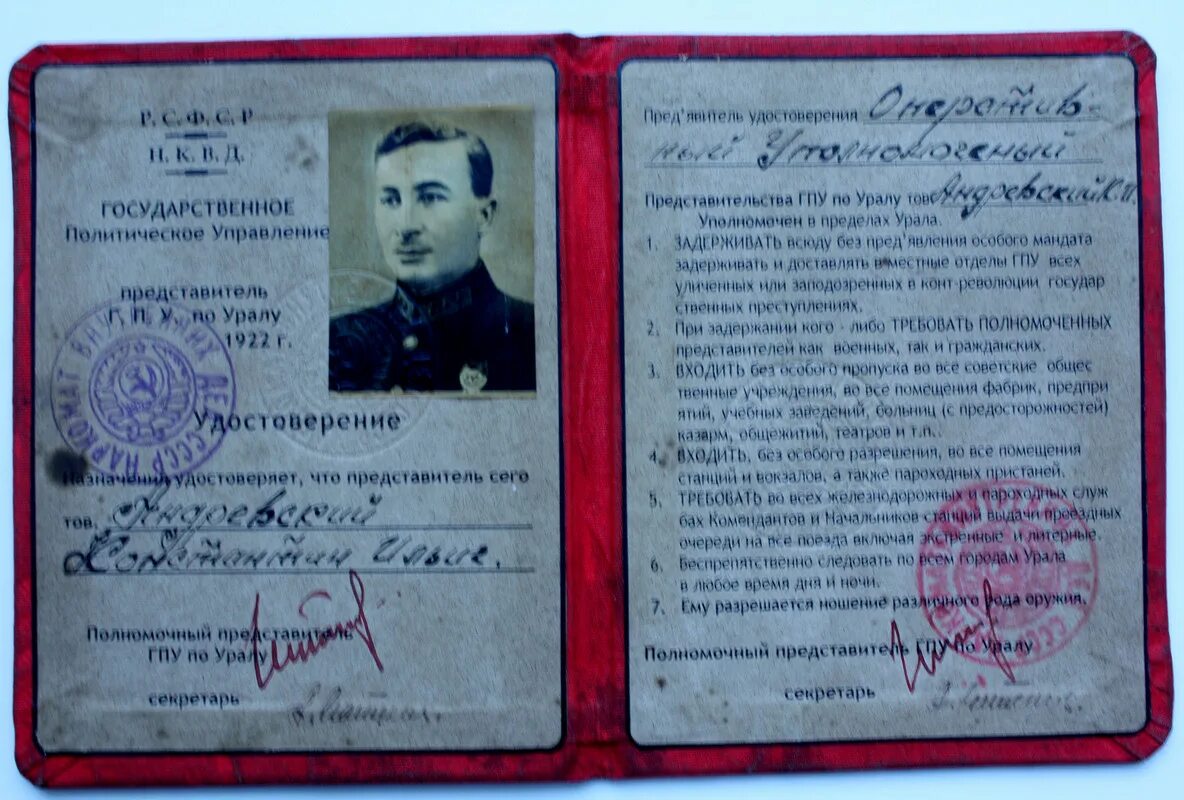 Р.С.Ф.С.Р
Н.К.В.Д.
ГОСУДАРСТВЕННОЕ
Политическое Управление
представитель
Г. П. У. по Уралу
1922 г.
НАРКОМАТ ВНУТРЕННИХ ДЕЛ СССР
Удостоверение
Назначения удостоверяет, что представитель сего
тов. Андревский
Константин Ильич.
Полномочный представитель
ГПУ по Уралу
секретарь
Пред'явитель удостоверения Оператив-
ный Уполномоченый
Представительства ГПУ по Уралу тов Андревский К.И.
Уполномочен в пределах Урала.
1. ЗАДЕРЖИВАТЬ всюду без пред'явления особого мандата
задерживать и доставлять в местные отделы ГПУ всех
уличенных или заподозренных в конт-революции государ
ственных преступлениях.
2. При задержании кого - либо ТРЕБОВАТЬ ПОЛНОМОЧЕННЫХ
представителей как военных, так и гражданских.
3. ВХОДИТЬ без особого пропуска во все советские общес
твенные учреждения, во все помещения фабрик, предпри
ятий, учебных заведений, больниц (с предосторожностей)
казарм, общежитий, театров и т.п..
4. ВХОДИТЬ, без особого разрешения, во все помещения
станций и вокзалов, а также пароходных пристаней.
5. ТРЕБОВАТЬ во всех железнодорожных и пароходных служ
бах Комендантов и Начальников станций выдачи проездных
очереди на все поезда включая экстренные и литерные.
6. Беспрепятственно следовать по всем городам Урала
в любое время дня и ночи.
7. Ему разрешается ношение различного рода оружия.
Полномочный представитель ГПУ по Уралу
секретарь